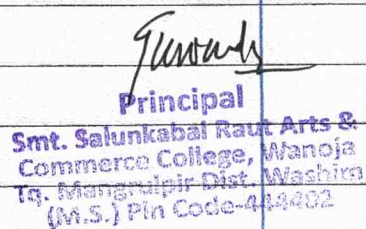 Principal
Smt. Salunkabai Raut Arts &
Commerce College, Wanoja
Tq. Mangrulpir Dist. Washim
(M.S.) Pin Code-444402